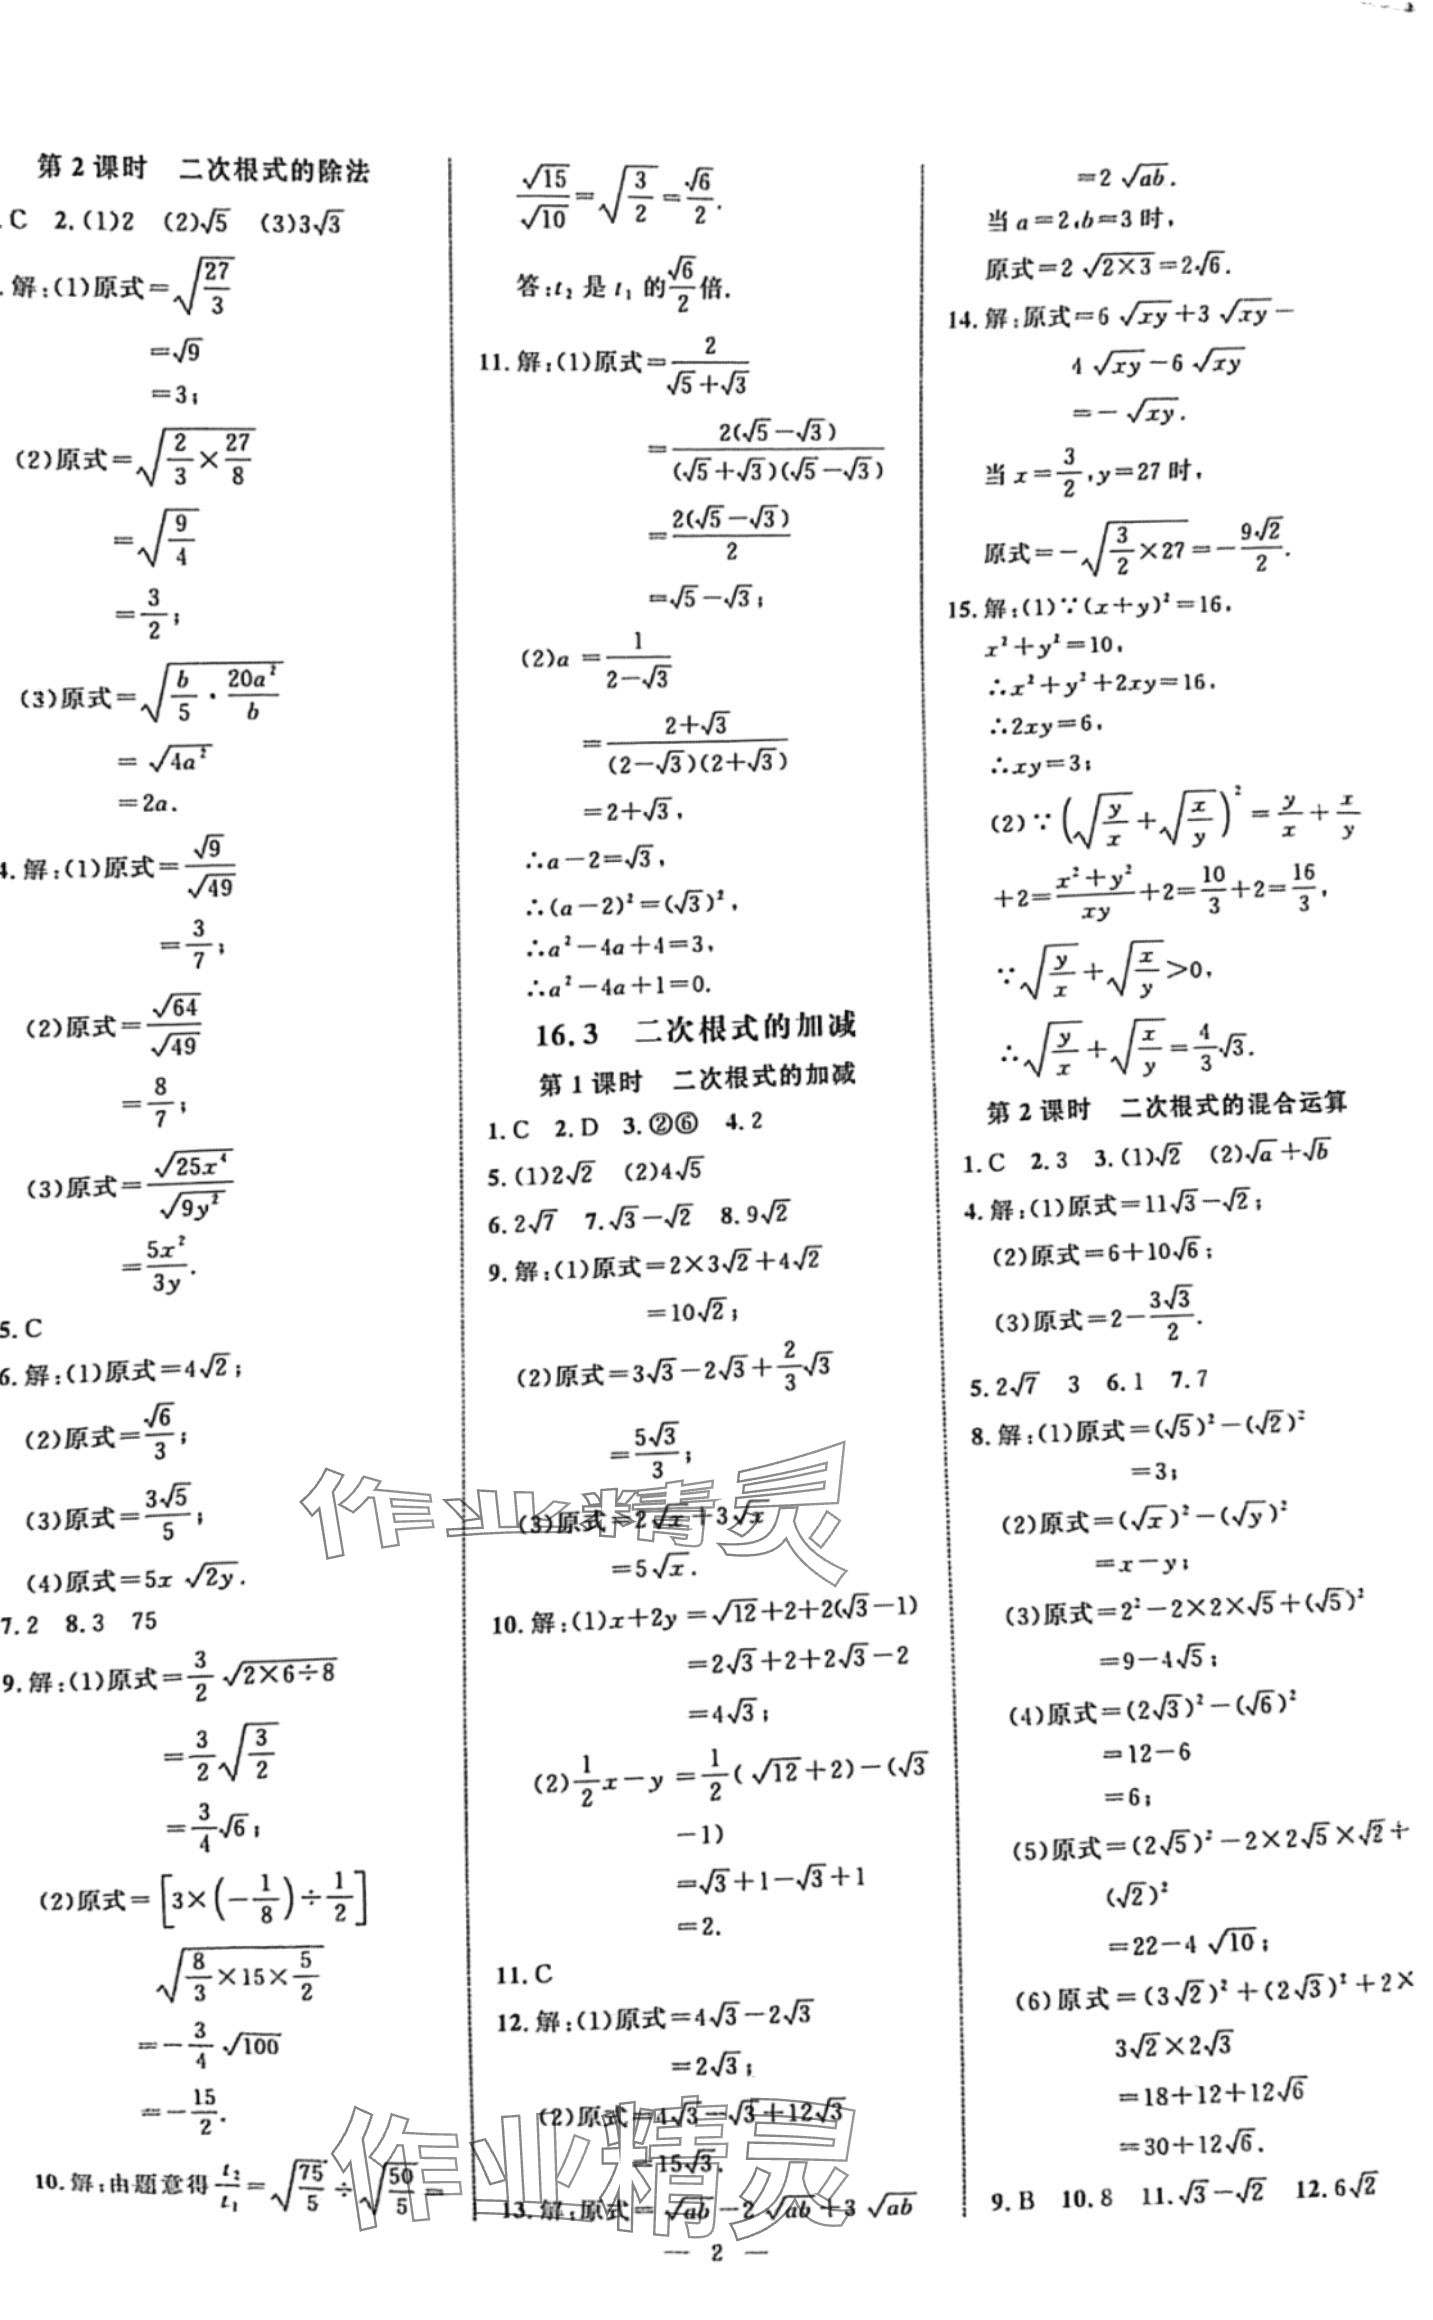 第2课时 二次根式的除法
.C 2.(1)2 (2)√5 (3)3√3
.解:(1)原式=√(27/3)
=√9
=3;
(2)原式=√(2/3×27/8)
=√(9/4)
=3/2;
(3)原式=√(b/5·20a²/b)
=√(4a²)
=2a.
4.解:(1)原式=√9/√49
=3/7;
(2)原式=√64/√49
=8/7;
(3)原式=√(25x⁴)/√(9y²)
=5x²/3y.
5.C
6.解:(1)原式=4√2;
(2)原式=√6/3;
(3)原式=3√5/5;
(4)原式=5x√(2y).
7.2 8.3 75
9.解:(1)原式=3/2√(2×6÷8)
=3/2√(3/2)
=3/4√6;
(2)原式=[3×(-1/8)÷1/2]
√(8/3×15×5/2)
=-3/4√100
=-15/2.
10.解:由题意得t₂/t₁=√(75/5)÷√(50/5)=
√15/√10=√(3/2)=√6/2.
答:t₂是t₁的√6/2倍.
11.解:(1)原式=2/(√5+√3)
=2(√5-√3)/(√5+√3)(√5-√3)
=2(√5-√3)/2
=√5-√3;
(2)a=1/(2-√3)
=(2+√3)/(2-√3)(2+√3)
=2+√3,
∴a-2=√3,
∴(a-2)²=(√3)²,
∴a²-4a+4=3,
∴a²-4a+1=0.
16.3 二次根式的加减
第1课时 二次根式的加减
1.C 2.D 3.②⑥ 4.2
5.(1)2√2 (2)4√5
6.2√7 7.√3-√2 8.9√2
9.解:(1)原式=2×3√2+4√2
=10√2;
(2)原式=3√3-2√3+2/3√3
=5√3/3;
(3)原式=2√x+3√x
=5√x.
10.解:(1)x+2y=√12+2+2(√3-1)
=2√3+2+2√3-2
=4√3;
(2)1/2x-y=1/2(√12+2)-(√3
-1)
=√3+1-√3+1
=2.
11.C
12.解:(1)原式=4√3-2√3
=2√3;
(2)原式=4√3-√3+12√3
=15√3.
13.解:原式=√ab-2√ab+3√ab
=2√ab.
当a=2,b=3时,
原式=2√(2×3)=2√6.
14.解:原式=6√xy+3√xy-
4√xy-6√xy
=-√xy.
当x=3/2,y=27时,
原式=-√(3/2×27)=-9√2/2.
15.解:(1)∵(x+y)²=16,
x²+y²=10,
∴x²+y²+2xy=16,
∴2xy=6,
∴xy=3;
(2)∵(√(y/x)+√(x/y))²=y/x+x/y
+2=(x²+y²)/xy+2=10/3+2=16/3,
∵√(y/x)+√(x/y)>0,
∴√(y/x)+√(x/y)=4/3√3.
第2课时 二次根式的混合运算
1.C 2.3 3.(1)√2 (2)√a+√b
4.解:(1)原式=11√3-√2;
(2)原式=6+10√6;
(3)原式=2-3√3/2.
5.2√7 3 6.1 7.7
8.解:(1)原式=(√5)²-(√2)²
=3;
(2)原式=(√x)²-(√y)²
=x-y;
(3)原式=2²-2×2×√5+(√5)²
=9-4√5;
(4)原式=(2√3)²-(√6)²
=12-6
=6;
(5)原式=(2√5)²-2×2√5×√2+
(√2)²
=22-4√10;
(6)原式=(3√2)²+(2√3)²+2×
3√2×2√3
=18+12+12√6
=30+12√6.
9.B 10.8 11.√3-√2 12.6√2
— 2 —
作业精灵
作业精灵